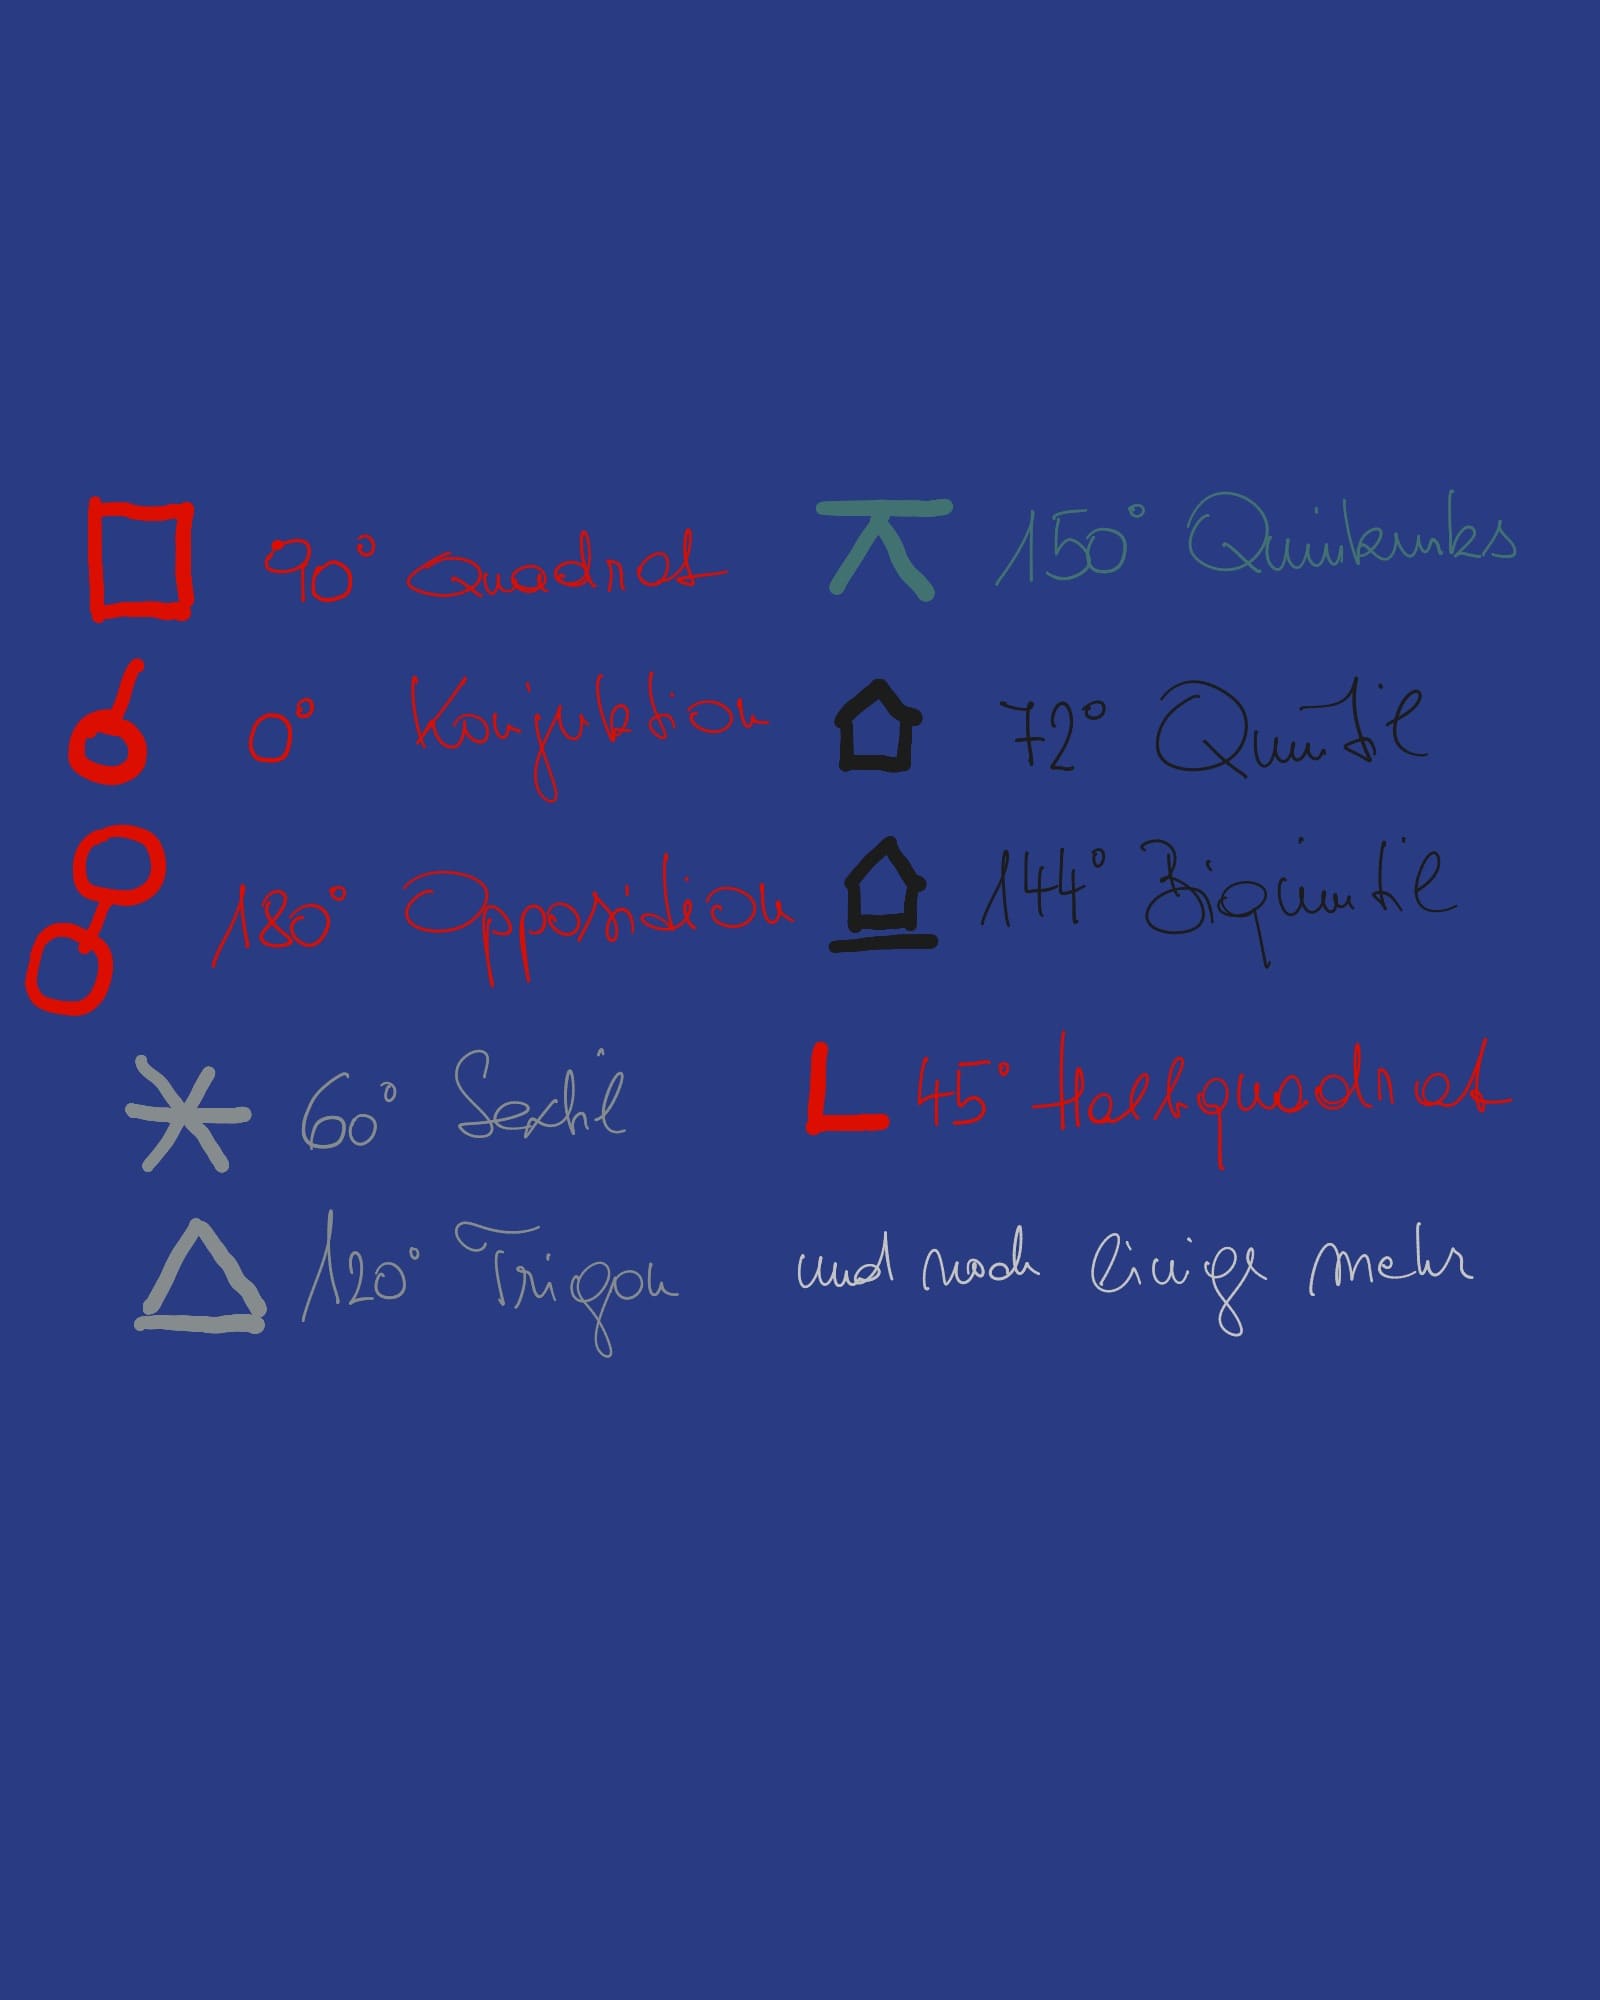 90° Quadrat
0° Konjuktion
180° Opposition
60° Sextil
120° Trigon
150° Quinkunks
72° Quintil
144° Biquintil
45° Halbquadrat
und noch einige mehr